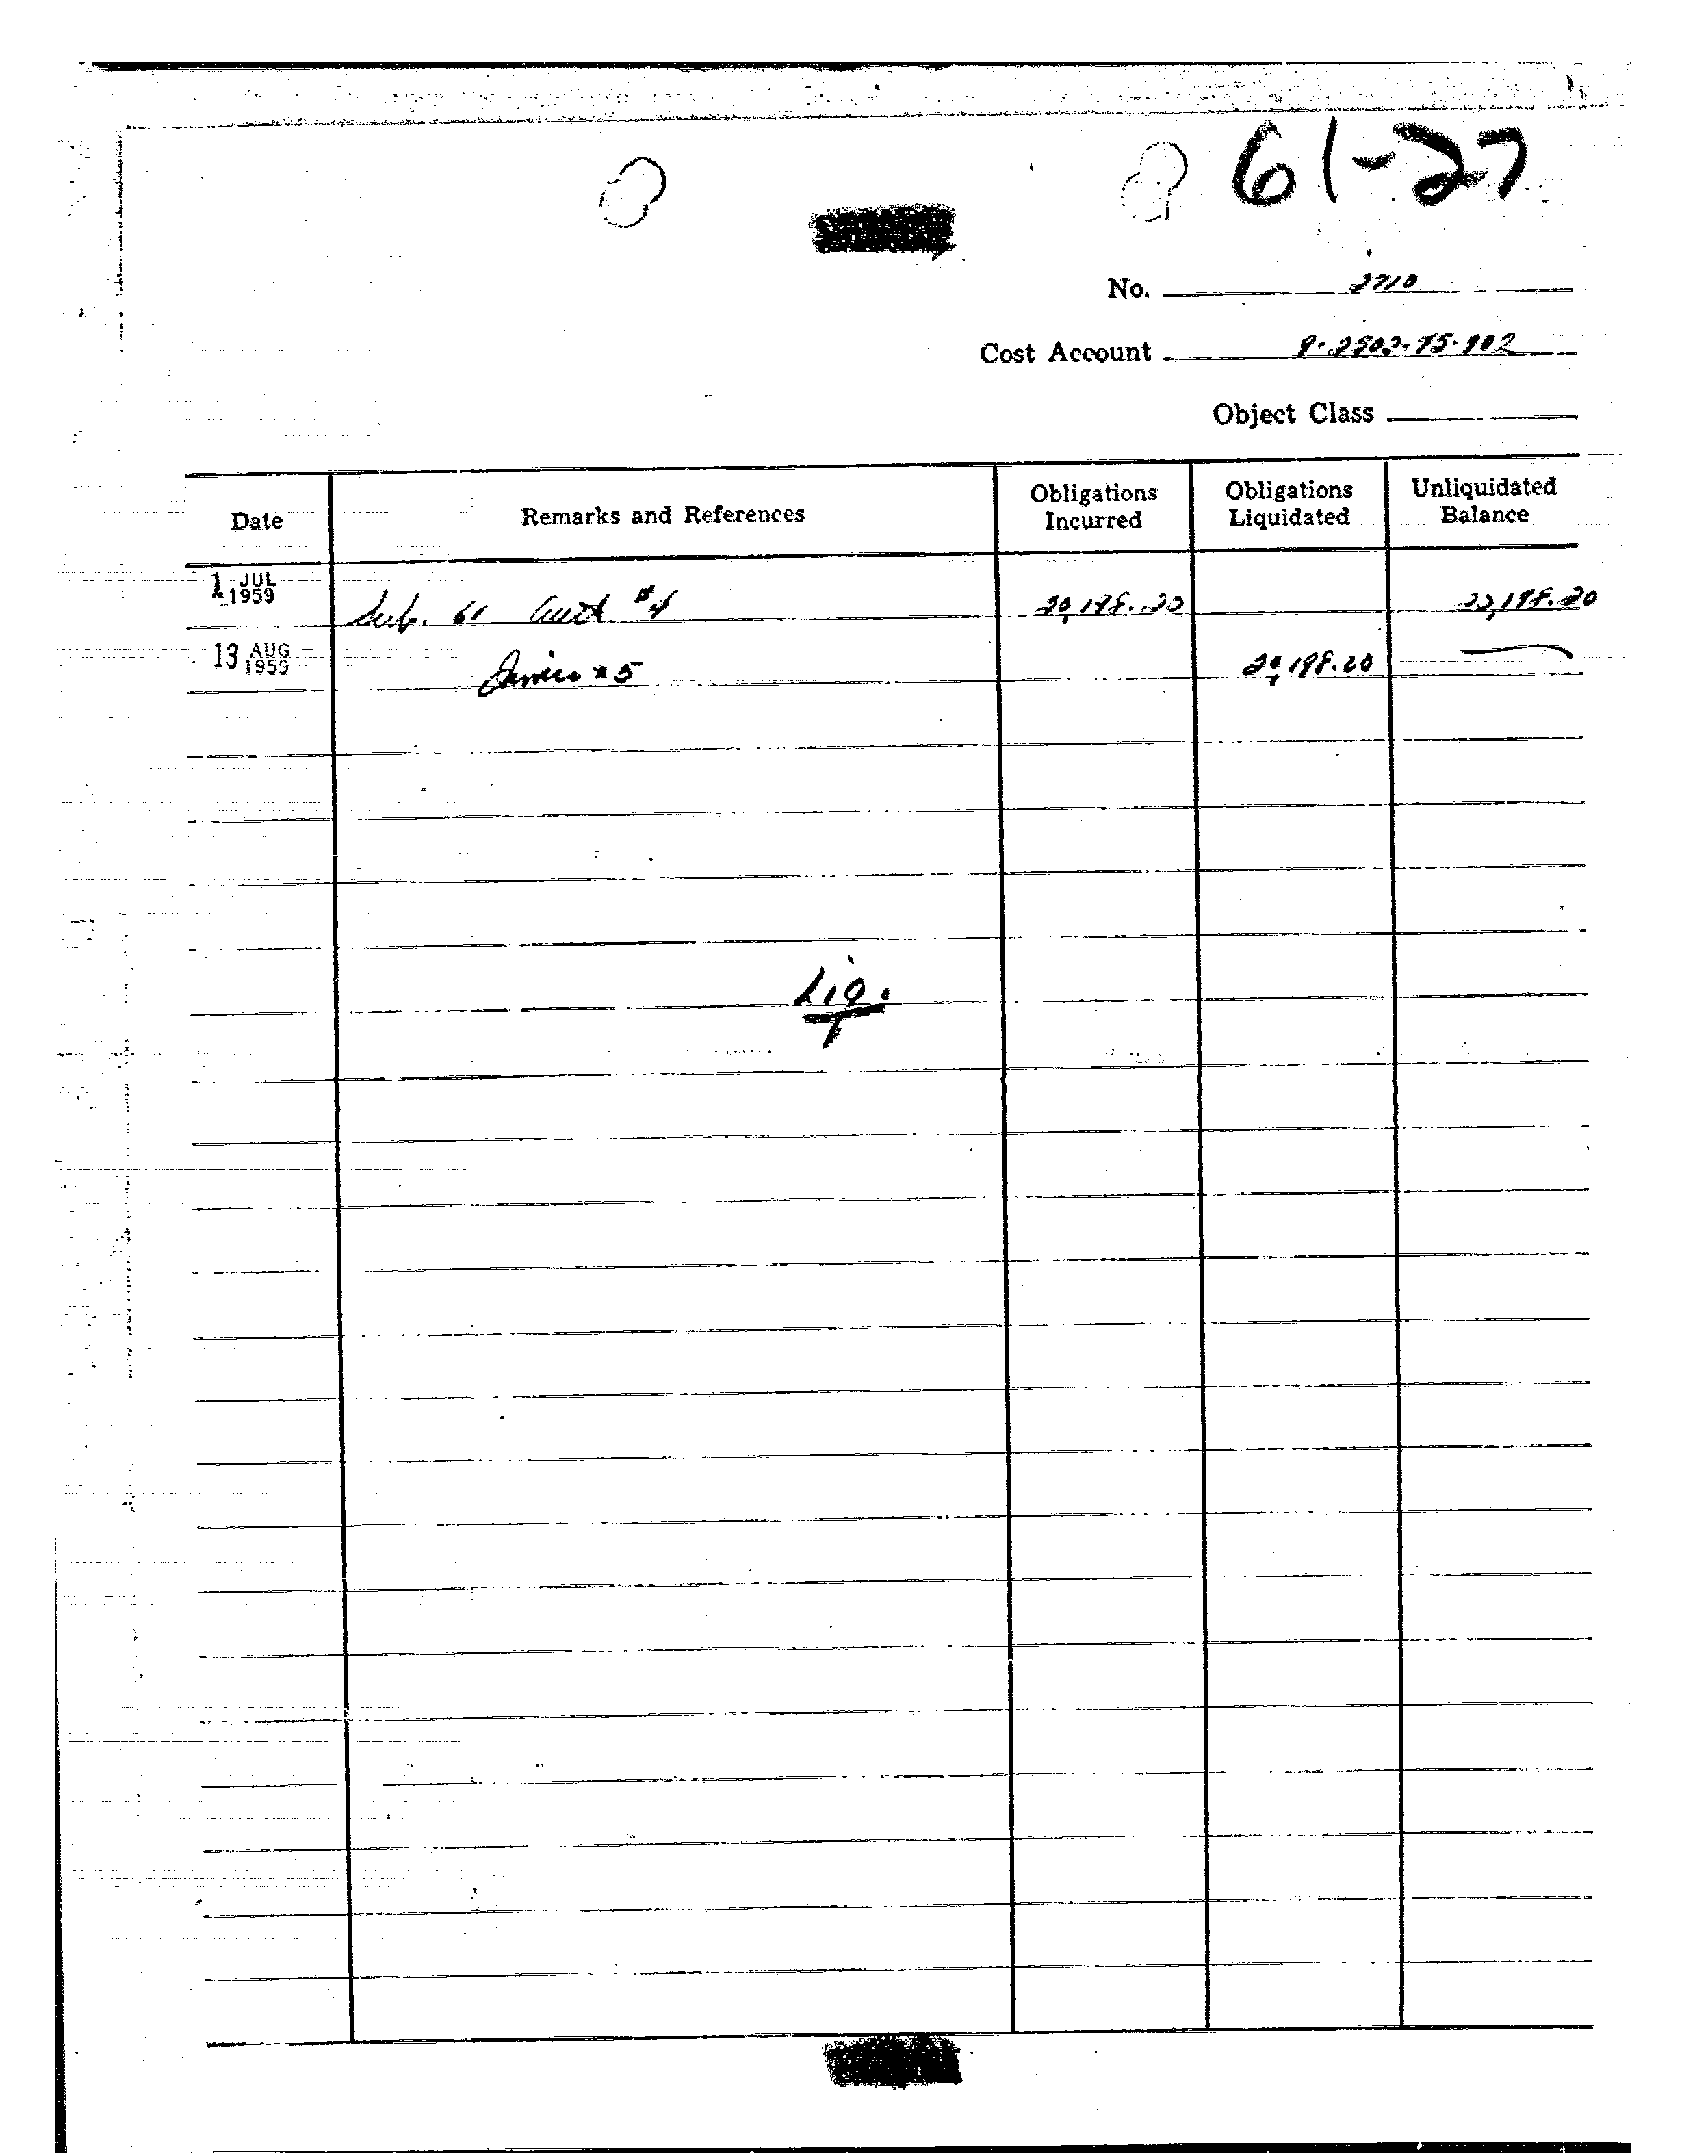 61-27
No. 2710
Cost Account
Object Class
Date Remarks and References Obligations Incurred Obligations Liquidated Unliquidated Balance
1 JUL 1959 Sub. 61 Auth #4 20,198.20 20,198.20
13 AUG 1959 #5 20,198.20
Liq.